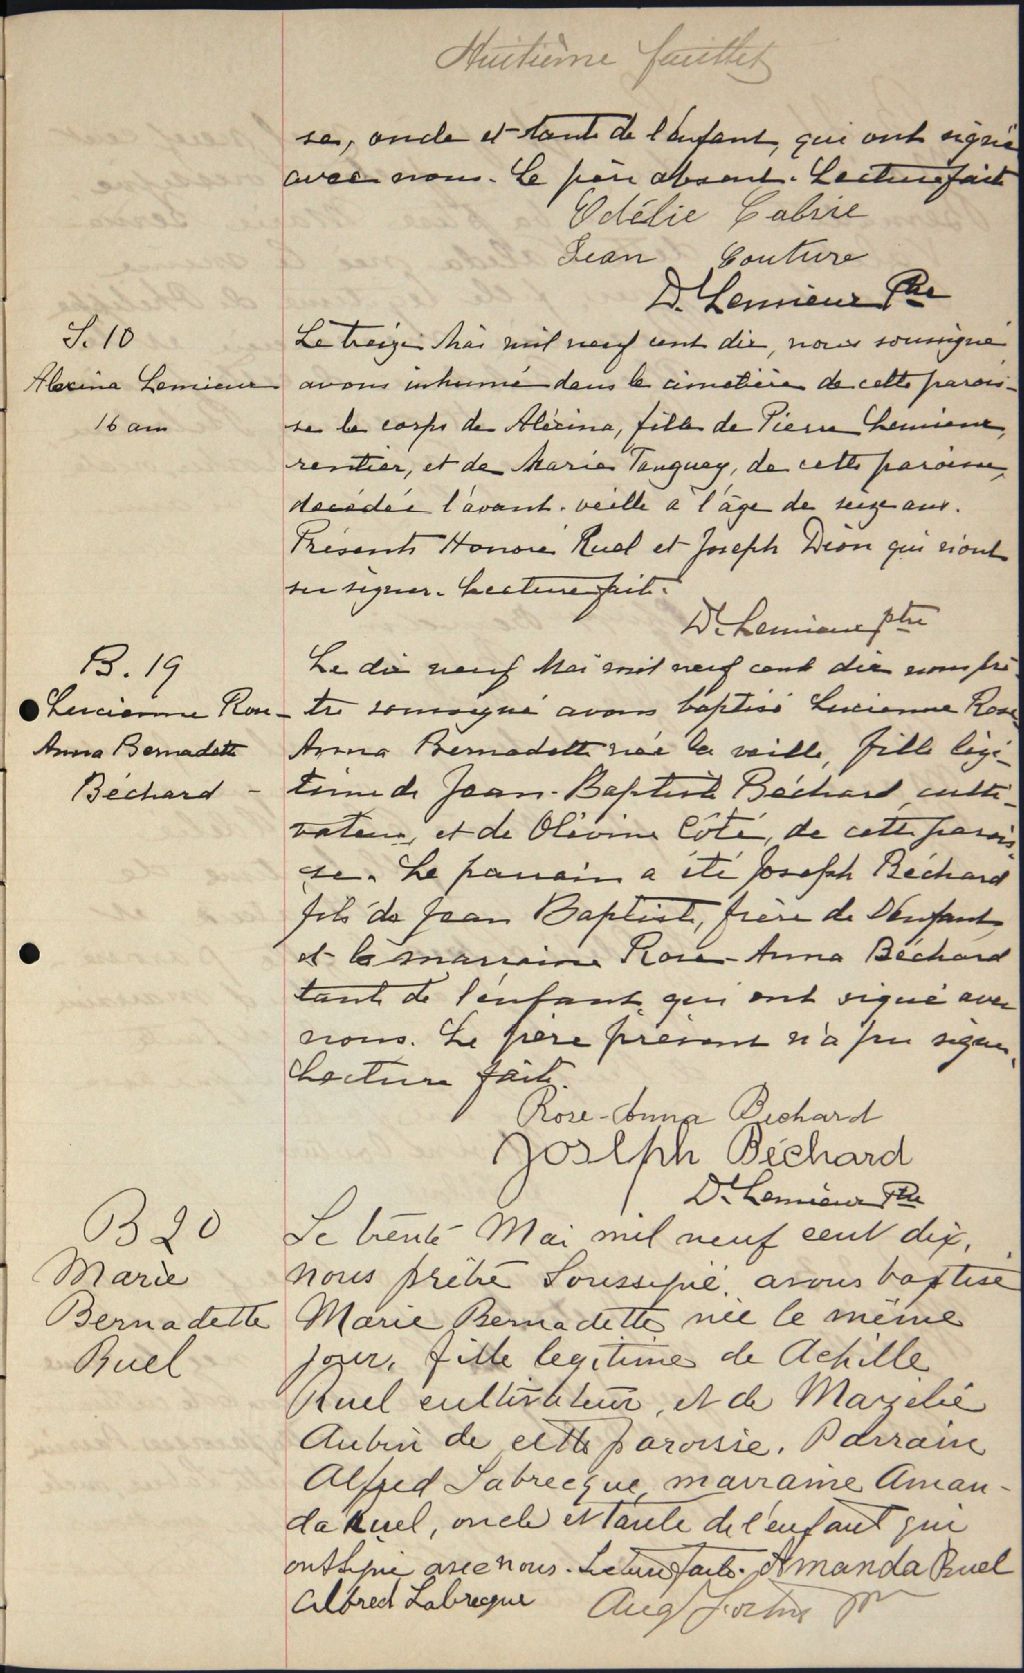 Huitième feuillet
se, oncle et tante de l'enfant, qui ont signé
avec nous. Le père absent. Lecture faite
Odélie
Jean Couture
D. Lemieux Ptre
S. 10
Alexina Lemieux
16 ans
Le treize Mai mil neuf cent dix, nous soussigné
avons inhumé dans le cimetière de cette parois-
se le corps de Aléxina, fille de Pierre Lemieux,
rentier, et de Marie Tanguay, de cette paroisse,
décédée l'avant-veille à l'âge de seize ans.
Présents Honoré Ruel et Joseph Dion qui n'ont
su signer. Lecture faite.
D. Lemieux ptre
B. 19
Lucienne Rose-
Anna Bernadette
Béchard -
Le dix neuf Mai mil neuf cent dix nous prê-
tre soussigné avons baptisé Lucienne Rose
Anna Bernadette née la veille, fille légi-
time de Jean-Baptiste Béchard, culti-
vateur, et de Olévine Côté, de cette parois-
se. Le parrain a été Joseph Béchard
fils de Jean Baptiste, frère de l'enfant
et la marraine Rose-Anna Béchard
tante de l'enfant qui ont signé avec
nous. Le père présent n'a pu signer.
Lecture faite.
Rose-Anna Bechard
Joseph Béchard
D. Lemieux Ptre
B 20
Marie
Bernadette
Ruel
Le trente Mai mil neuf cent dix,
nous prêtre soussigné, avons baptisé
Marie Bernadette née le même
jour, fille legitime de Achille
Ruel cultivateur, et de
Aubin de cette paroisse. Parrain
Alfred Labrecque, marraine Aman-
da Ruel, oncle et tante de l'enfant qui
ont signé avec nous. Lecture faite. Amanda Ruel
Alfred Labrecque Aug